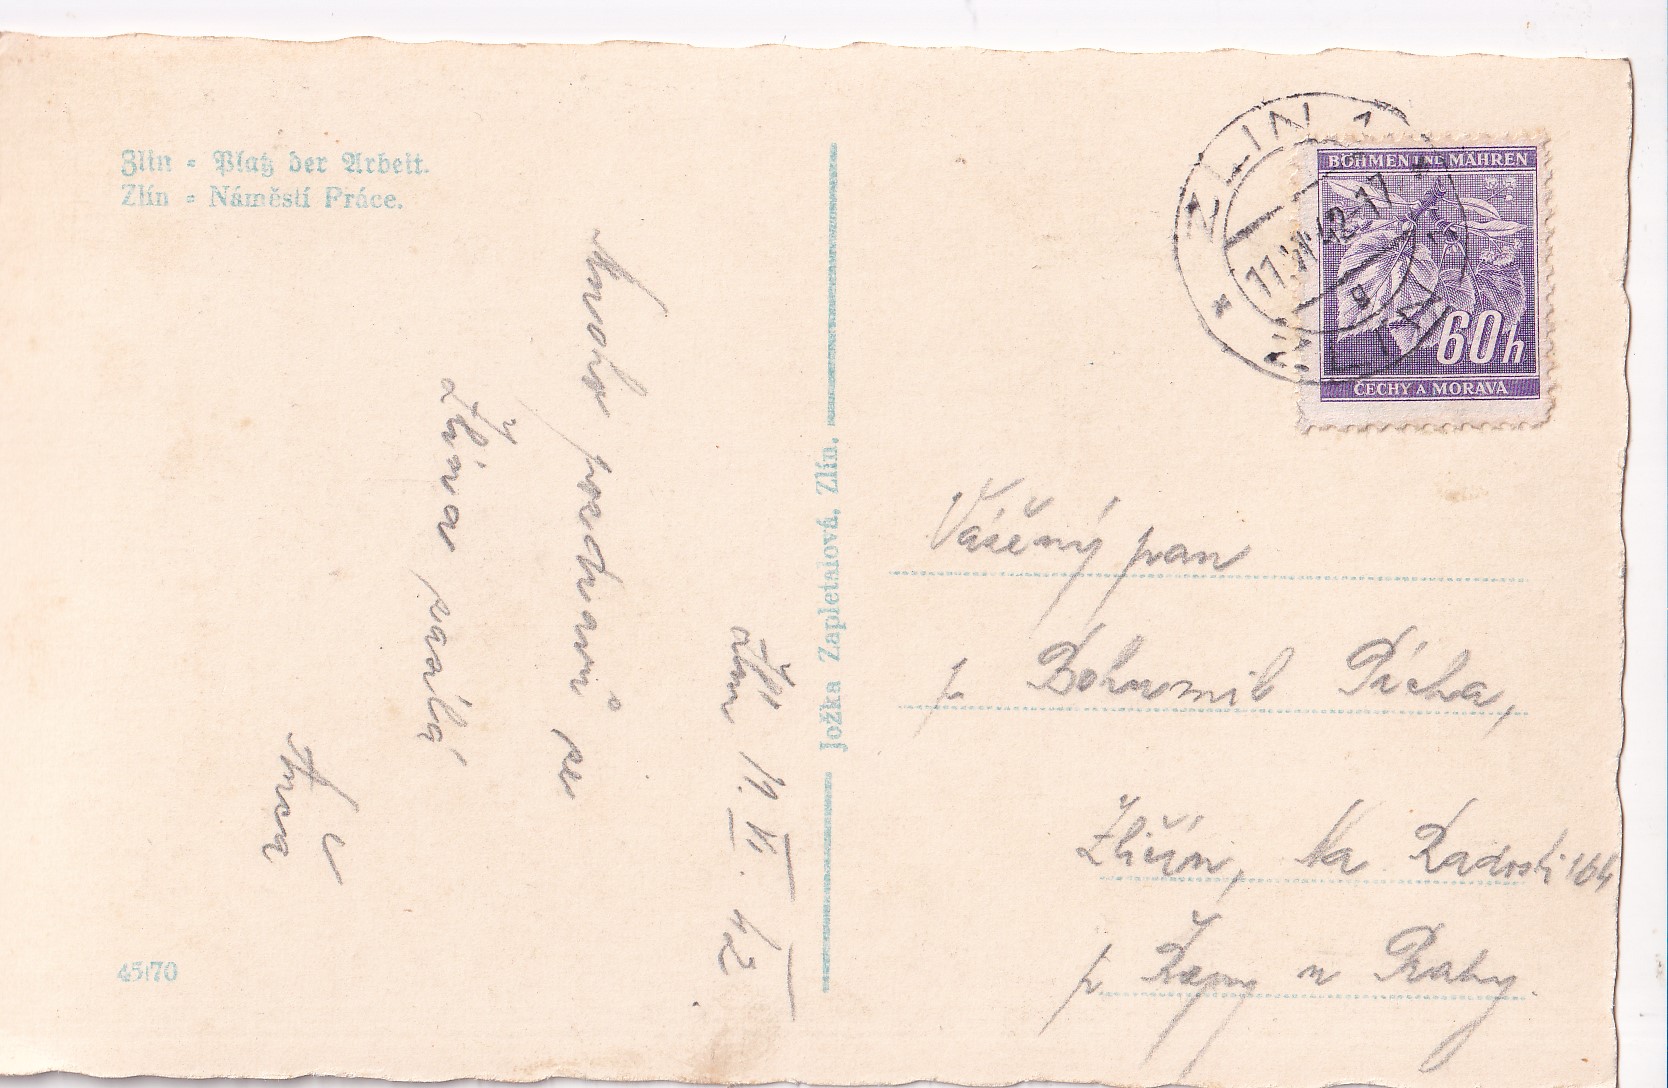 Zlin - Platz der Arbeit.
Zlín - Náměstí Práce.
Zlín 11. VI. 42
Mnoho pozdravů ze
Zlína posílá
45/70
Jožka Zapletalová, Zlín.
ZLIN 1
11.VI.42-17
ZLÍN
BÖHMEN UND MÄHREN
60h
ČECHY A MORAVA
Vážený pan
p Bohumil Pácha,
Zličín, Na Radosti 164
p Řepy u Prahy.